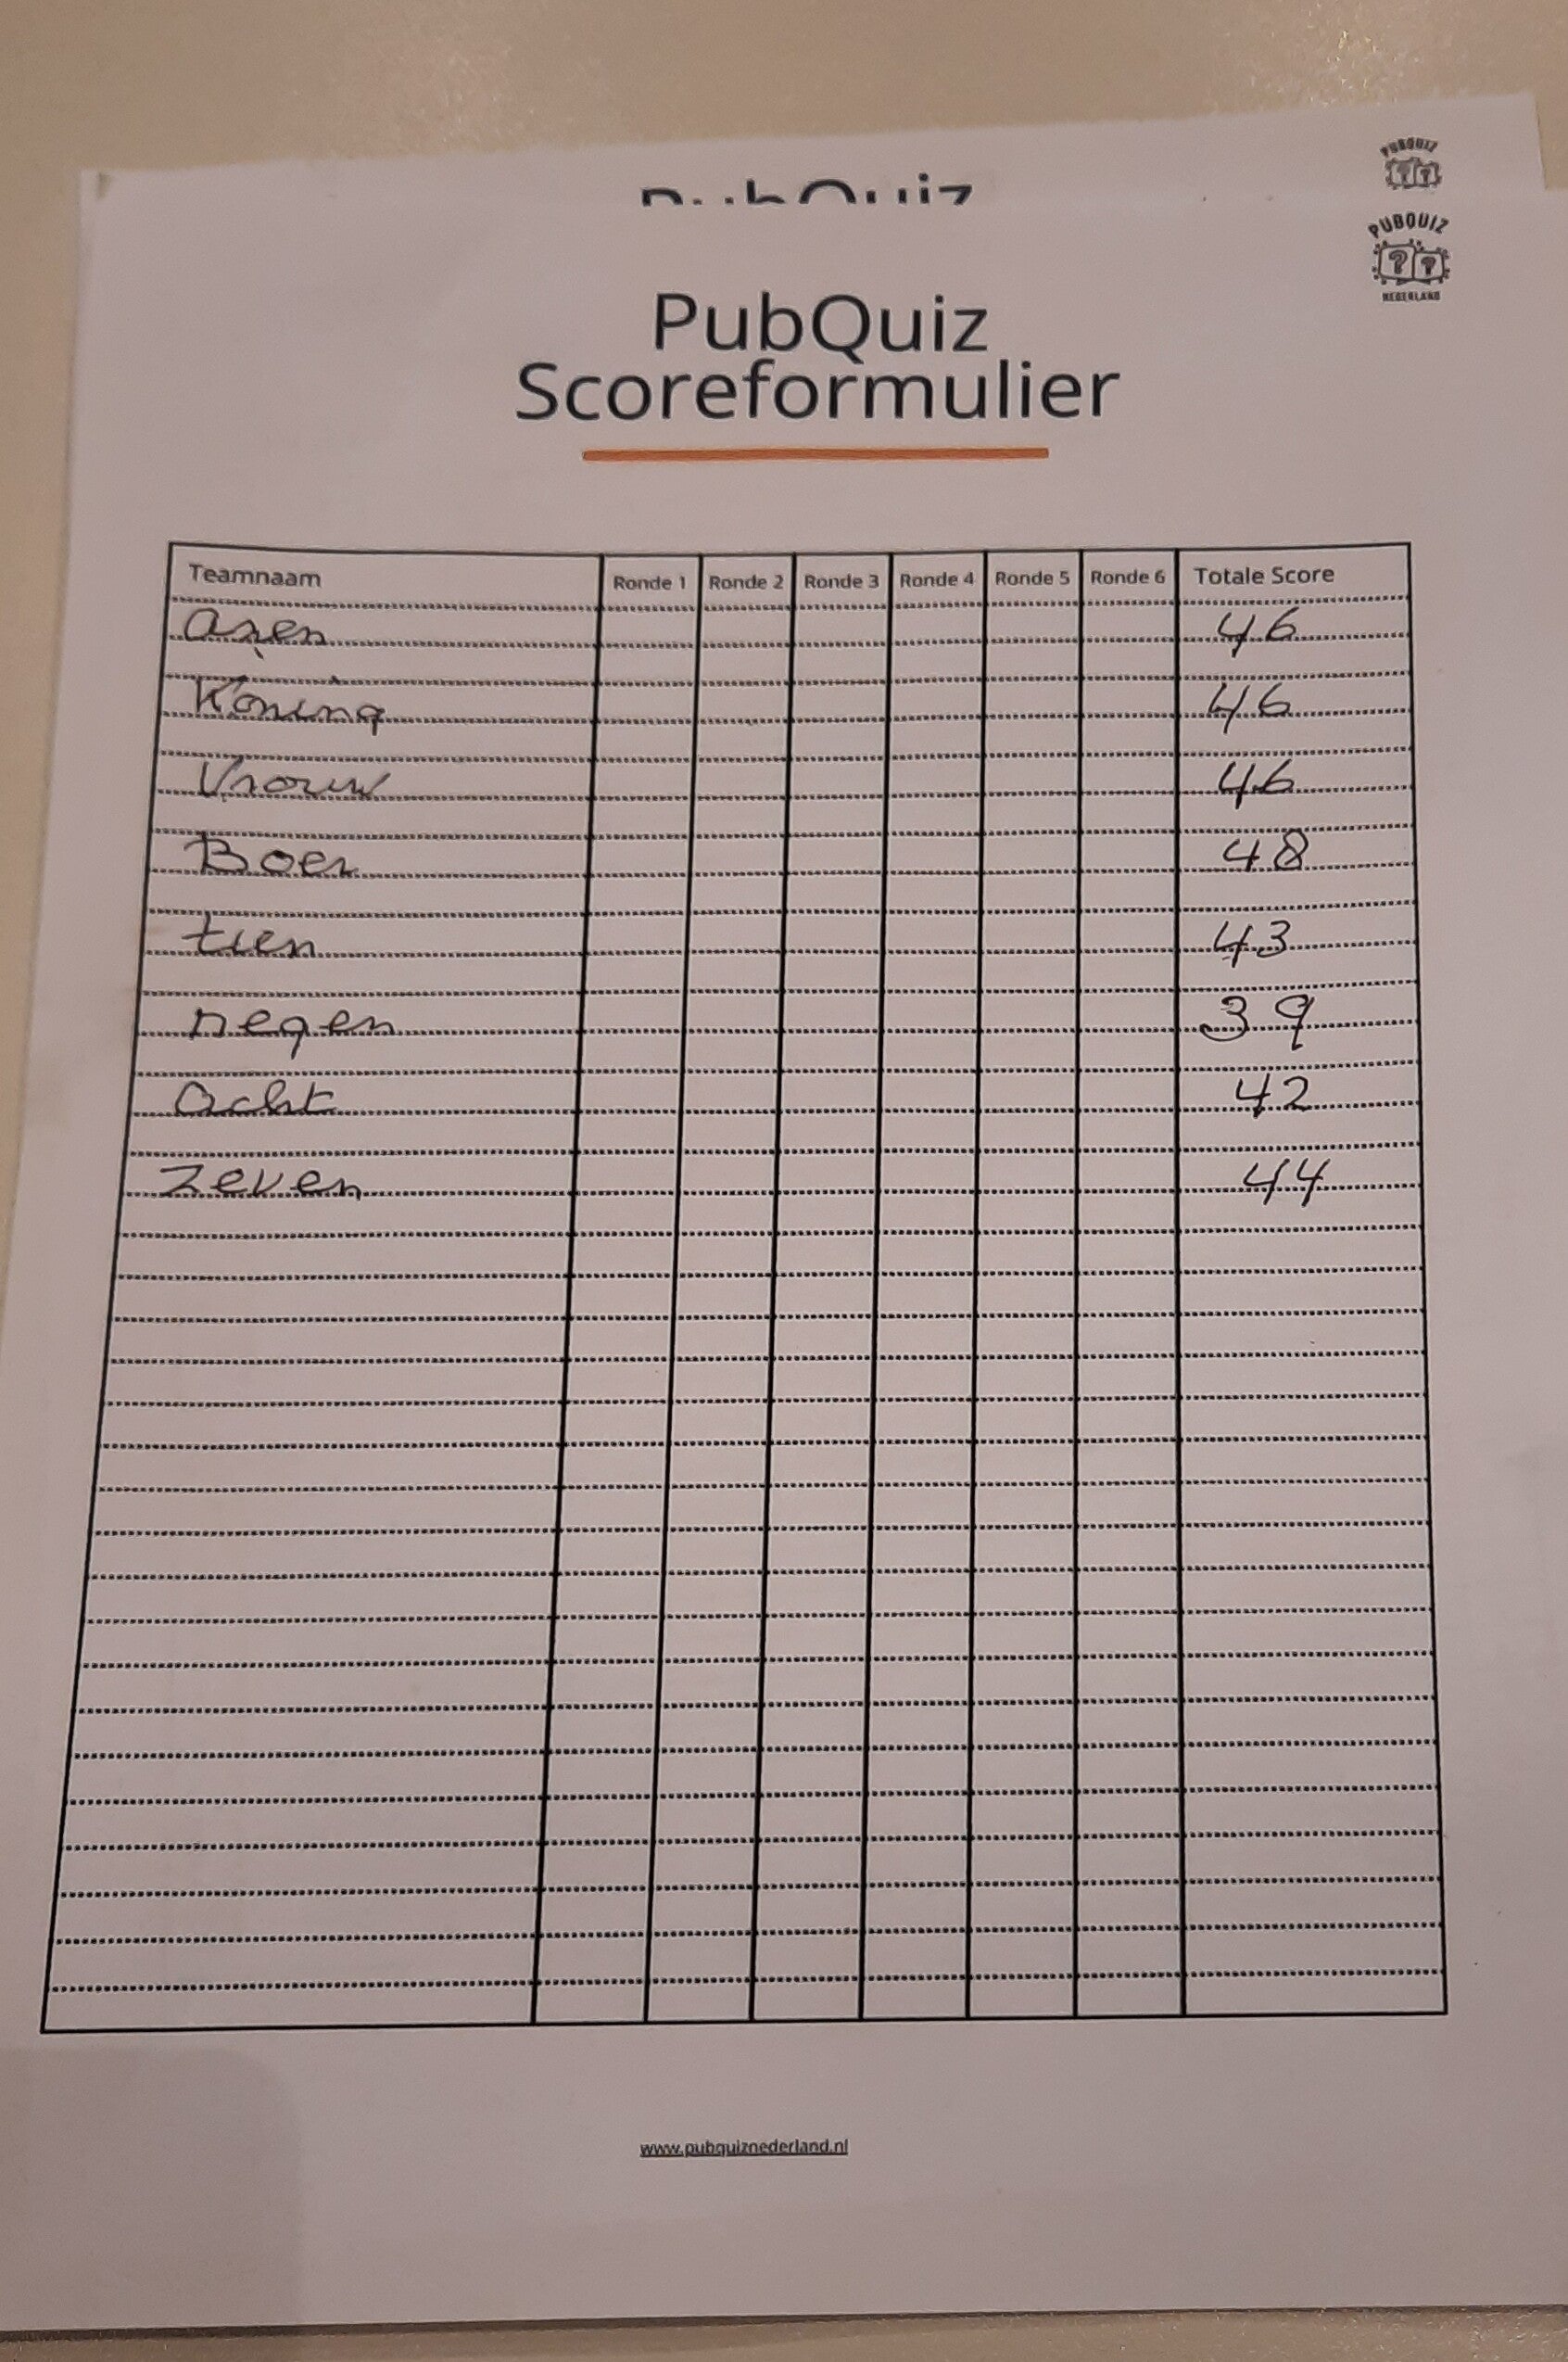 PUBQUIZ
PubQuiz
PUBQUIZ
? ?
NEDERLAND
PubQuiz
Scoreformulier
Teamnaam Ronde 1 Ronde 2 Ronde 3 Ronde 4 Ronde 5 Ronde 6 Totale Score
Azen 46
Koning 46
Vrouw 46
Boer 48
tien 43
negen 39
Acht 42
Zeven 44
www.pubquiznederland.nl